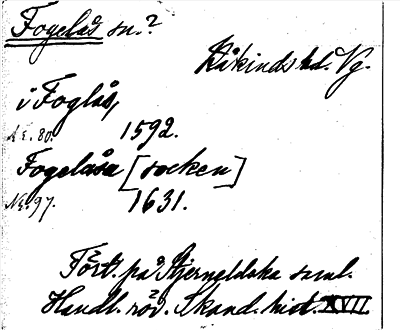 Fogelås sn.?
Kåkinds hd. Vg.
i Foglås,
NE. 80.
1592.
Fogelåsa [socken]
NE. 97.
1631.
Fört. på Stjerneldska saml.
Handl. rör. Skand. hist. XVII.